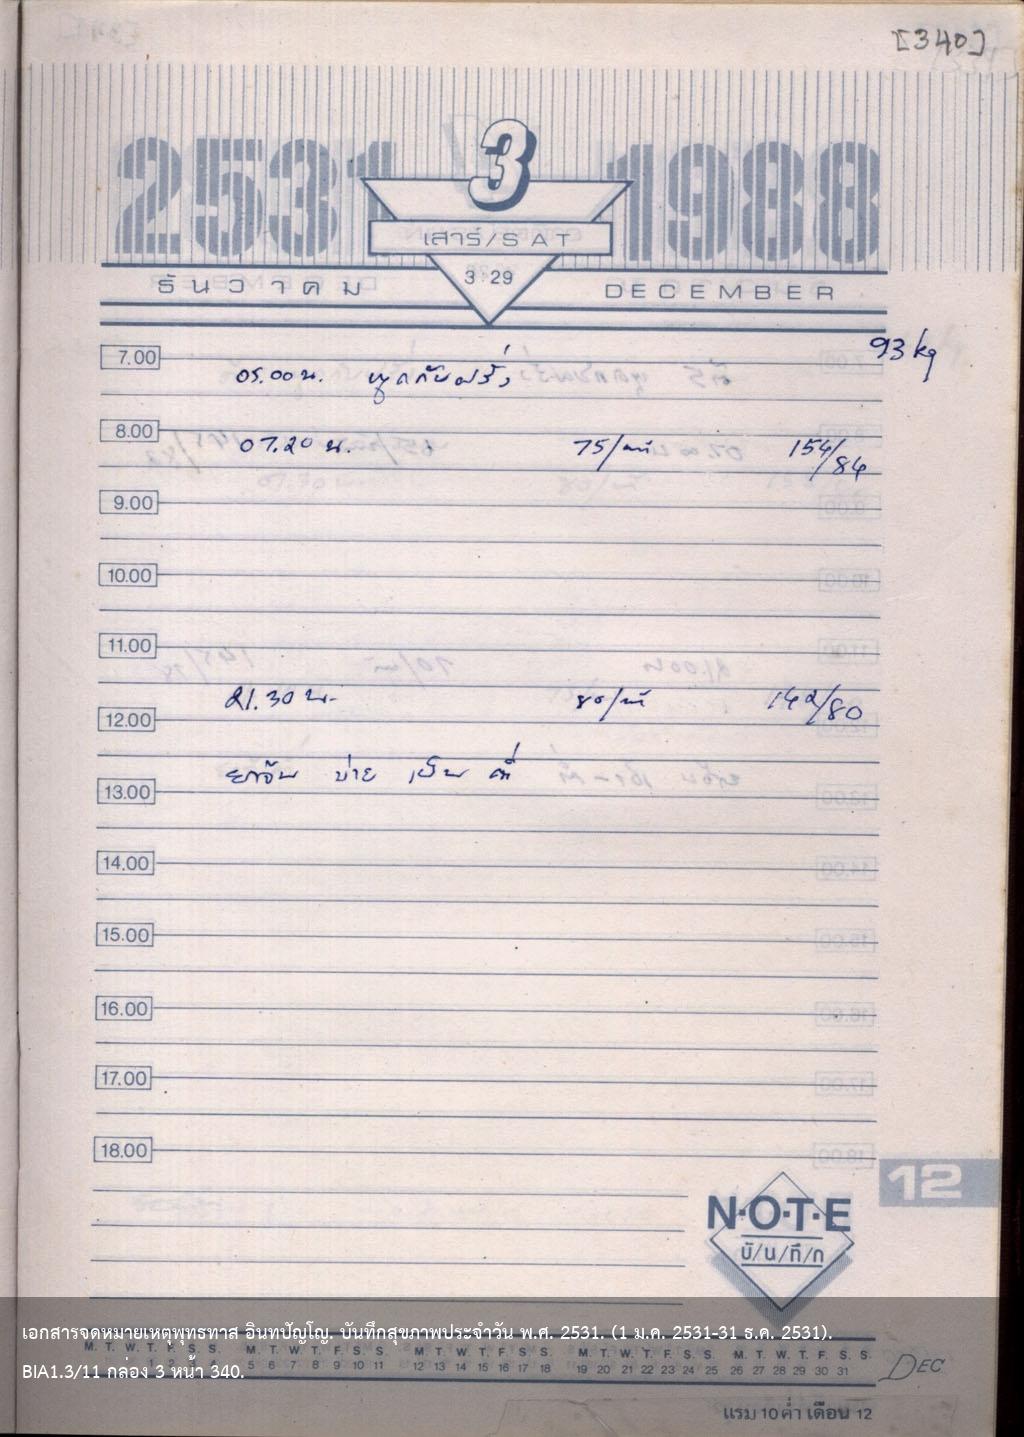 [340]
2531 3 1988
เสาร์/SAT
3·29
ธันวาคม DECEMBER
93 kg
7.00
05.00 น. พูดกับฝรั่ง
8.00
07.20 น. 75/นาที 154/84
9.00
10.00
11.00
21.30 น. 80/นาที 142/80
12.00
บ่าย เย็น
13.00
14.00
15.00
16.00
17.00
18.00
12
N·O·T·E
บั/น/ทึ/ก
เอกสารจดหมายเหตุพุทธทาส อินทปัญโญ. บันทึกสุขภาพประจำวัน พ.ศ. 2531. (1 ม.ค. 2531-31 ธ.ค. 2531).
M. T. W. T. F. S. S. M. T. W. T. F. S. S. M. T. W. T. F. S. S. M. T. W. T. F. S. S. M. T. W. T. F. S. S.
1 2 3 4 5 6 7 8 9 10 11 12 13 14 15 16 17 18 19 20 21 22 23 24 25 26 27 28 29 30 31
DEC
BIA1.3/11 กล่อง 3 หน้า 340.
แรม 10 ค่ำ เดือน 12